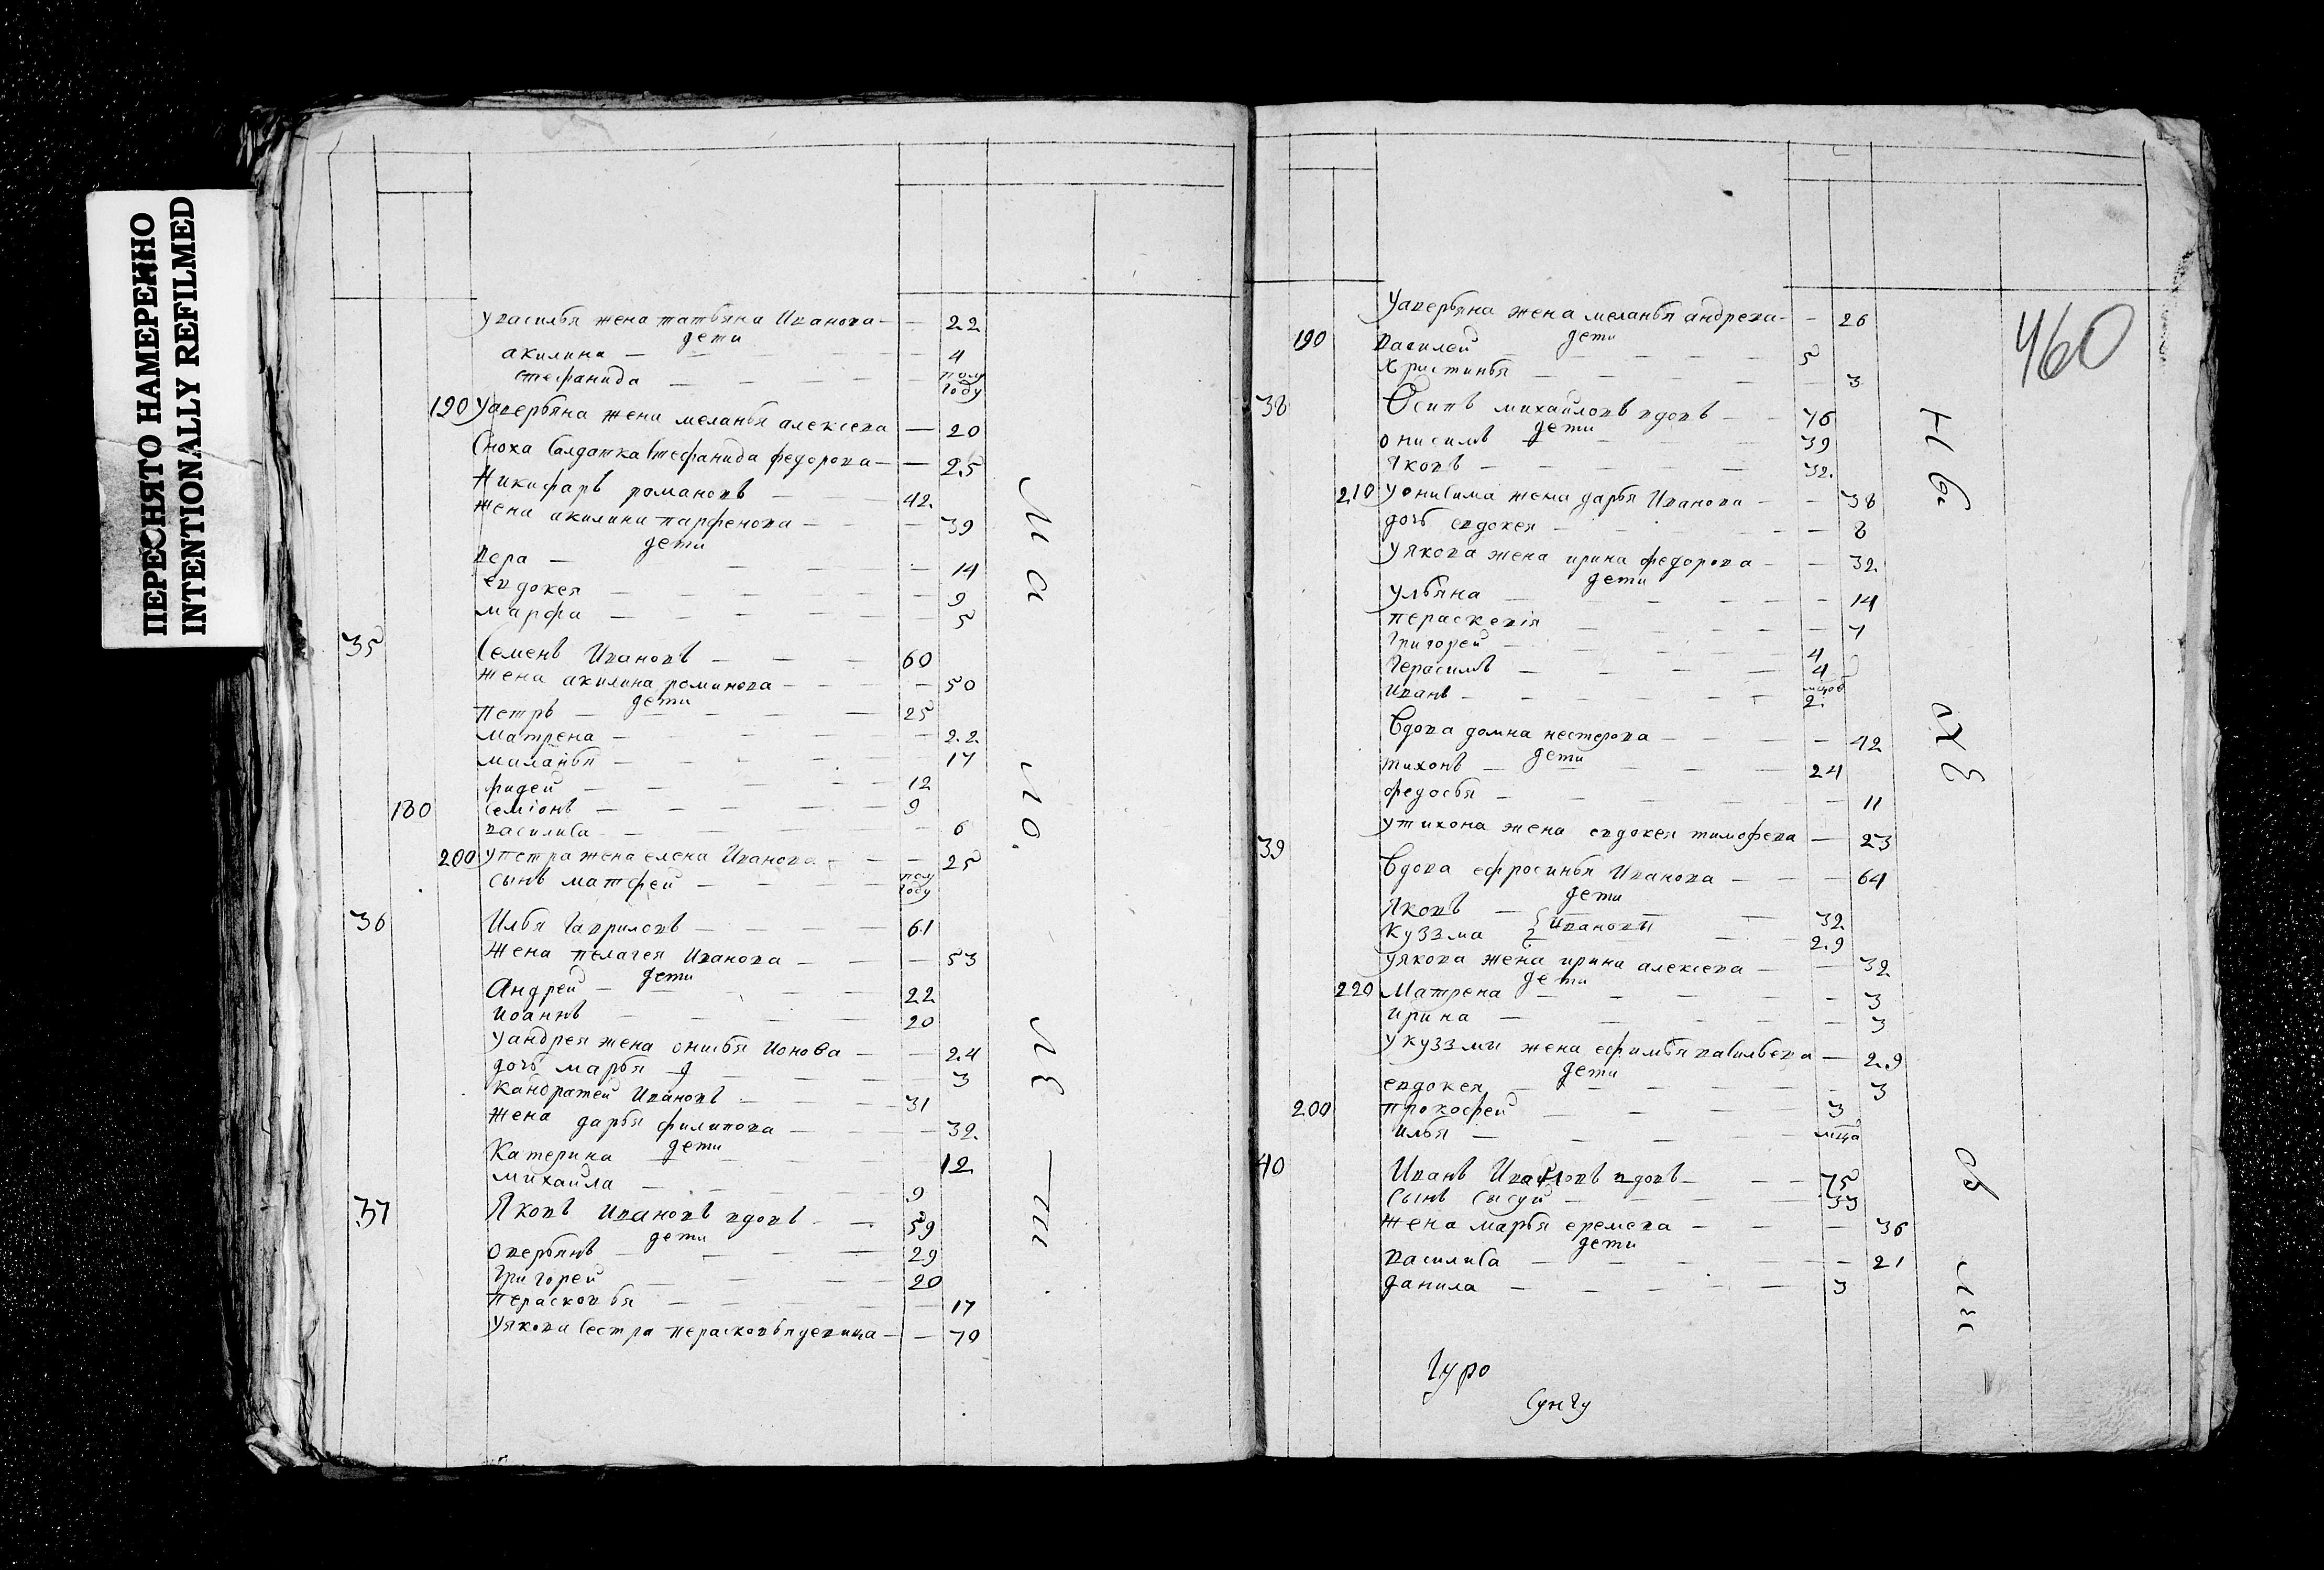 ПЕРЕСНЯТО НАМЕРЕННО
INTENTIONALLY REFILMED
увасилья жена татьяна Иванова — — 22
дети
акилина — — 4
стефанида — — полу году
190 Уаверьяна жена меланья алексеева — 20
Сноха Салдатка Стефанида федорова — — 25
Никифаръ романовъ — 42
жена акилина парфенова — — 39
дети
вера — — 14
евдокея — — 9
марфа — — 5
35 Семенъ Ивановъ — 60
жена акилина романова — — 50
дети
петръ — 25
матрена — — 22
миланья — — 17
фадей — 12
180 семионъ — 9
василиса — — 6
200 упетра жена елена Иванова — — 25
сынъ матфей — полу году
36 Илья Гавриловъ — 61
жена пелагея Иванова — — 53
дети
Андрей — 22
иоаннъ — 20
уандрея жена онисья Ионова — — 24
дочь марья — 3
Кандратей Ивановъ — 31
жена дарья филипова — — 32
дети
Катерина — 12
михайла — 9
37 Яковъ Ивановъ вдовъ — 59
дети
оверьянъ — 29
Григорей — 20
перасковья — — 17
Уякова Сестра перасковья девица — — 70
м а
м о.
м е
— т.
Уаверьяна жена меланья андреева — — 26
дети
190 василей — 5
христинья — — 3
38 Осипъ михайловъ вдовъ — 76
дети
онисимъ — 39
Яковъ — 32
210 уонисима жена дарья Иванова — — 38
дочь евдокея — — 8
уякова жена ирина федорова — — 32
дети
ульяна — — 14
параскевия — — 7
Григорей — 4
Герасимъ — 4
иванъ — мцов 2
Вдова домна нестерова — — 42
дети
тихонъ — 24
федосья — — 11
утихона жена евдокея тимофеева — 23
39
Вдова ефросинья Иванова — — 64
дети
Яковъ — Ивановы 32
Куззма 29
уякова жена ирина алексеева — — 32
дети
220 Матрена — — 3
ирина — — 3
укуззмы жена ефимья васильева — 29
дети
евдокея — — 3
200 прокофей — 3
илья — мца
40 Иванъ Ивановъ вдовъ — 75
сынъ сысуй — 33
жена марья еремеева — — 36
дети
василиса — — 21
данила — 3
460
Гуро
Сунгу